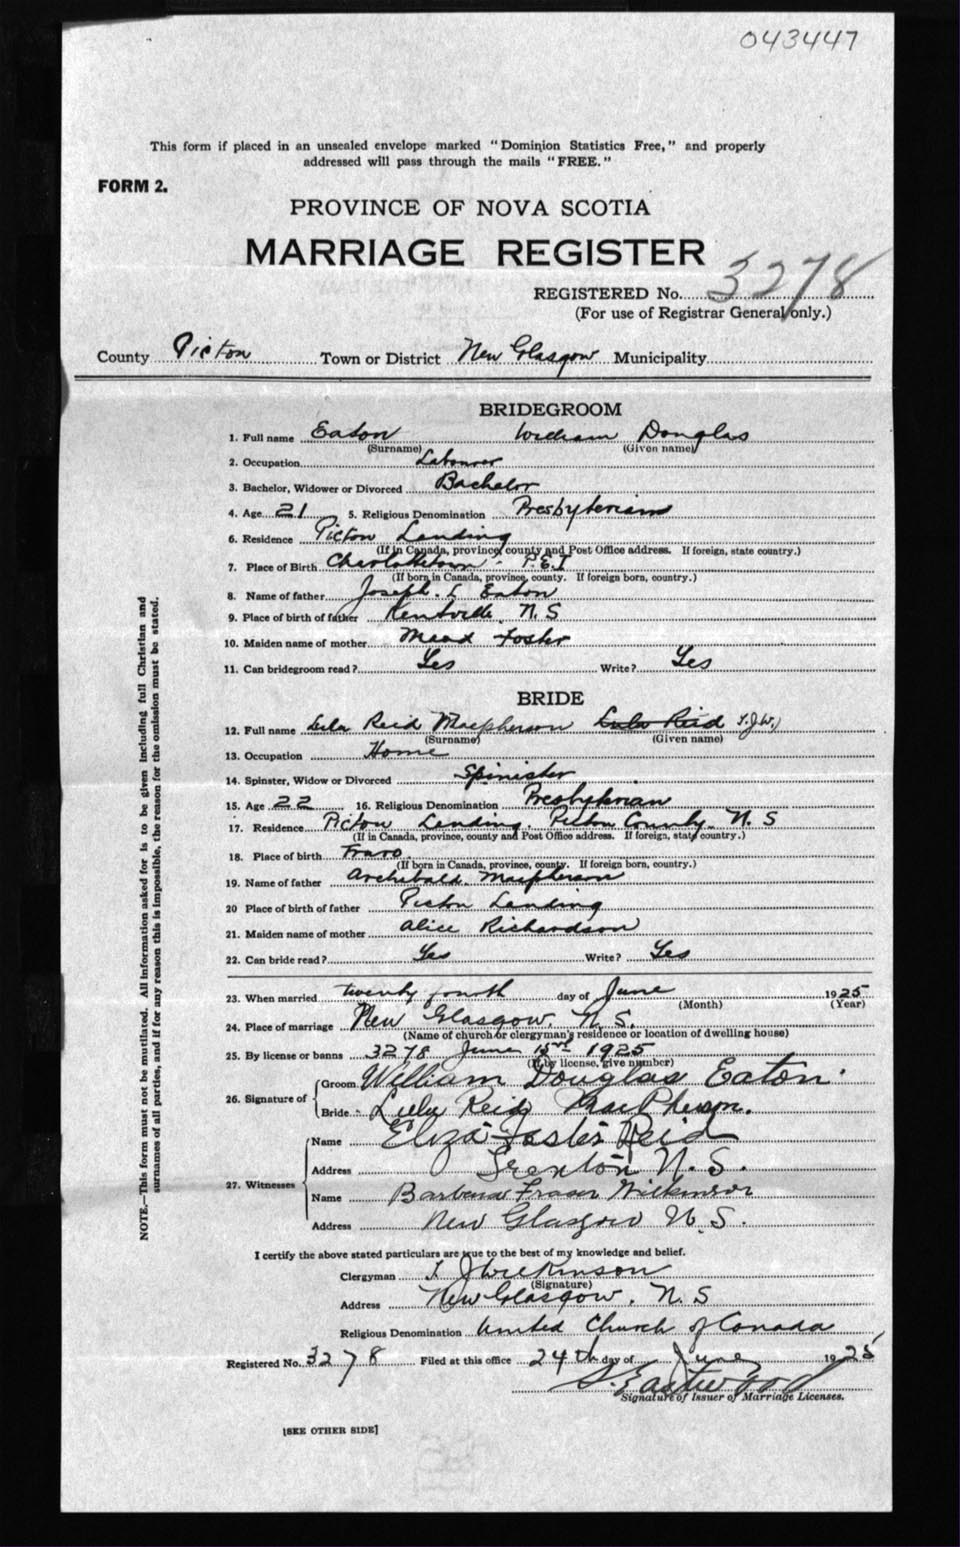 043447
This form if placed in an unsealed envelope marked "Dominion Statistics Free," and properly
addressed will pass through the mails "FREE."
FORM 2.
PROVINCE OF NOVA SCOTIA
MARRIAGE REGISTER
REGISTERED No. 3278
(For use of Registrar General only.)
County Picton Town or District New Glasgow Municipality
BRIDEGROOM
1. Full name Eaton William Douglas
(Surname) (Given name)
2. Occupation Labourer
3. Bachelor, Widower or Divorced Bachelor
4. Age 21 5. Religious Denomination Presbyterian
6. Residence Picton Landing
(If in Canada, province, county and Post Office address. If foreign, state country.)
7. Place of Birth Charlottetown - P.E.I
(If born in Canada, province, county. If foreign born, country.)
8. Name of father Joseph. L Eaton
9. Place of birth of father Kentville. N. S
10. Maiden name of mother Maud Foster
11. Can bridegroom read? Yes Write? Yes
BRIDE
12. Full name Lula Reid Macpherson Lula Reid T.J.W.)
(Surname) (Given name)
13. Occupation Home
14. Spinster, Widow or Divorced Spinister
15. Age 22 16. Religious Denomination Presbyterian
17. Residence Picton Landing. Picton County. N. S
(If in Canada, province, county and Post Office address. If foreign, state country.)
18. Place of birth
(If born in Canada, province, county. If foreign born, country.)
19. Name of father Archibald. Macpherson
20 Place of birth of father Picton Landing
21. Maiden name of mother Alice Richardson
22. Can bride read? Yes Write? Yes
23. When married twenty fourth day of June 1925
(Month) (Year)
24. Place of marriage New Glasgow, N. S.
(Name of church or clergyman's residence or location of dwelling house)
25. By license or banns 3278 June 1925
(If by license, give number)
26. Signature of
Groom William Douglas Eaton.
Bride Lula Reid MacPherson.
27. Witnesses
Name Eliza Foster Reid
Address Trenton N. S.
Name Barbara Fraser Wilkinson
Address New Glasgow N. S.
I certify the above stated particulars are true to the best of my knowledge and belief.
Clergyman T. J Wilkinson
(Signature)
Address New Glasgow, N. S
Religious Denomination United Church of Canada
Registered No. 3278 Filed at this office 24th day of June 1925
S. Eastwood
Signature of Issuer of Marriage Licenses.
[SEE OTHER SIDE]
NOTE.—This form must not be mutilated. All information asked for is to be given including full Christian and
surnames of all parties, and if for any reason this is impossible, the reason for the omission must be stated.